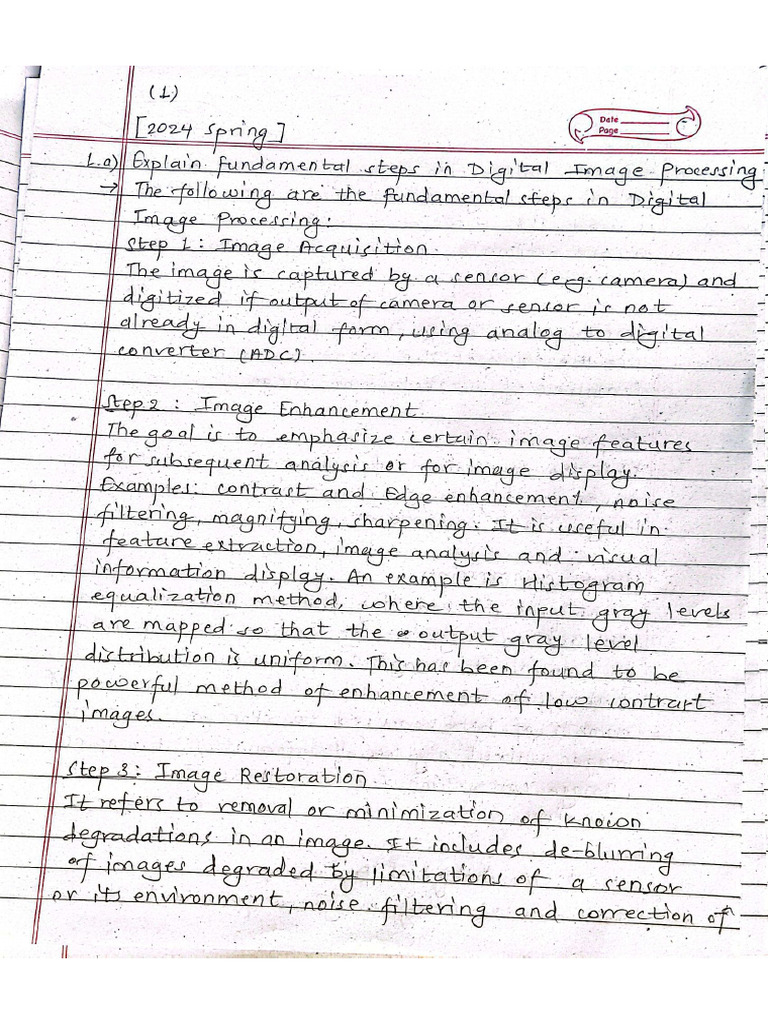 (1)
[2024 Spring]
Date
Page
1.a) Explain fundamental steps in Digital Image Processing
→ The following are the fundamental steps in Digital
Image Processing:
Step 1: Image Acquisition.
The image is captured by a sensor (e.g. camera) and
digitized if output of camera or sensor is not
already in digital form, using analog to digital
converter (ADC).
Step 2: Image Enhancement.
The goal is to emphasize certain image features
for subsequent analysis or for image display.
Examples: contrast and Edge enhancement, noise
filtering, magnifying, sharpening. It is useful in
feature extraction, image analysis and visual
information display. An example is Histogram
equalization method, where the input gray levels
are mapped so that the output gray level
distribution is uniform. This has been found to be
powerful method of enhancement of low contrart
images.
Step 3: Image Restoration
It refers to removal or minimization of known
degradations in an image. It includes de-blurring
of images degraded by limitations of a sensor
or its environment, noise filtering and correction of